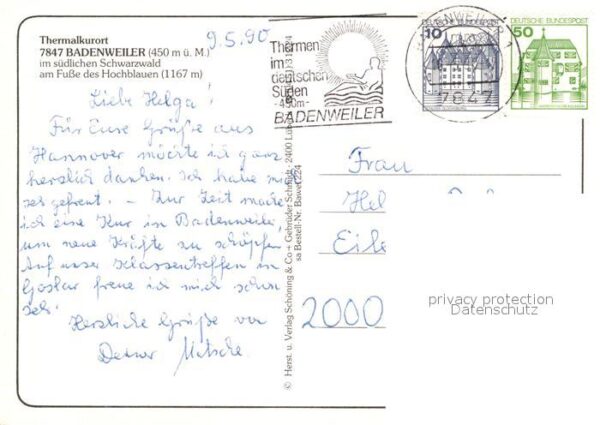 Thermalkurort
7847 BADENWEILER (450 m ü. M.)
im südlichen Schwarzwald
am Fuße des Hochblauen (1167 m)
9.5.90
Liebe Helga!
Für Eure Grüße aus
Hannover möchte ich ganz
herzlich danken. Ich habe mich
sehr gefreut. – Zur Zeit mache
ich eine Kur in Badenweiler,
um neue Kräfte zu schöpfen.
Auf unser Klassentreffen in
Goslar freue ich mich schon
sehr.
Herzliche Grüße von
Deiner
© Herst. u. Verlag Schöning & Co + Gebrüder Schmidt · 2400
sa Bestell-Nr.
Thermen
im
deutschen
Süden
- 450m -
BADENWEILER
BADENWEILER
7847
10
DEUTSCHE BUNDESPOST
50
Frau
Hel
Eile
2000
privacy protection
Datenschutz